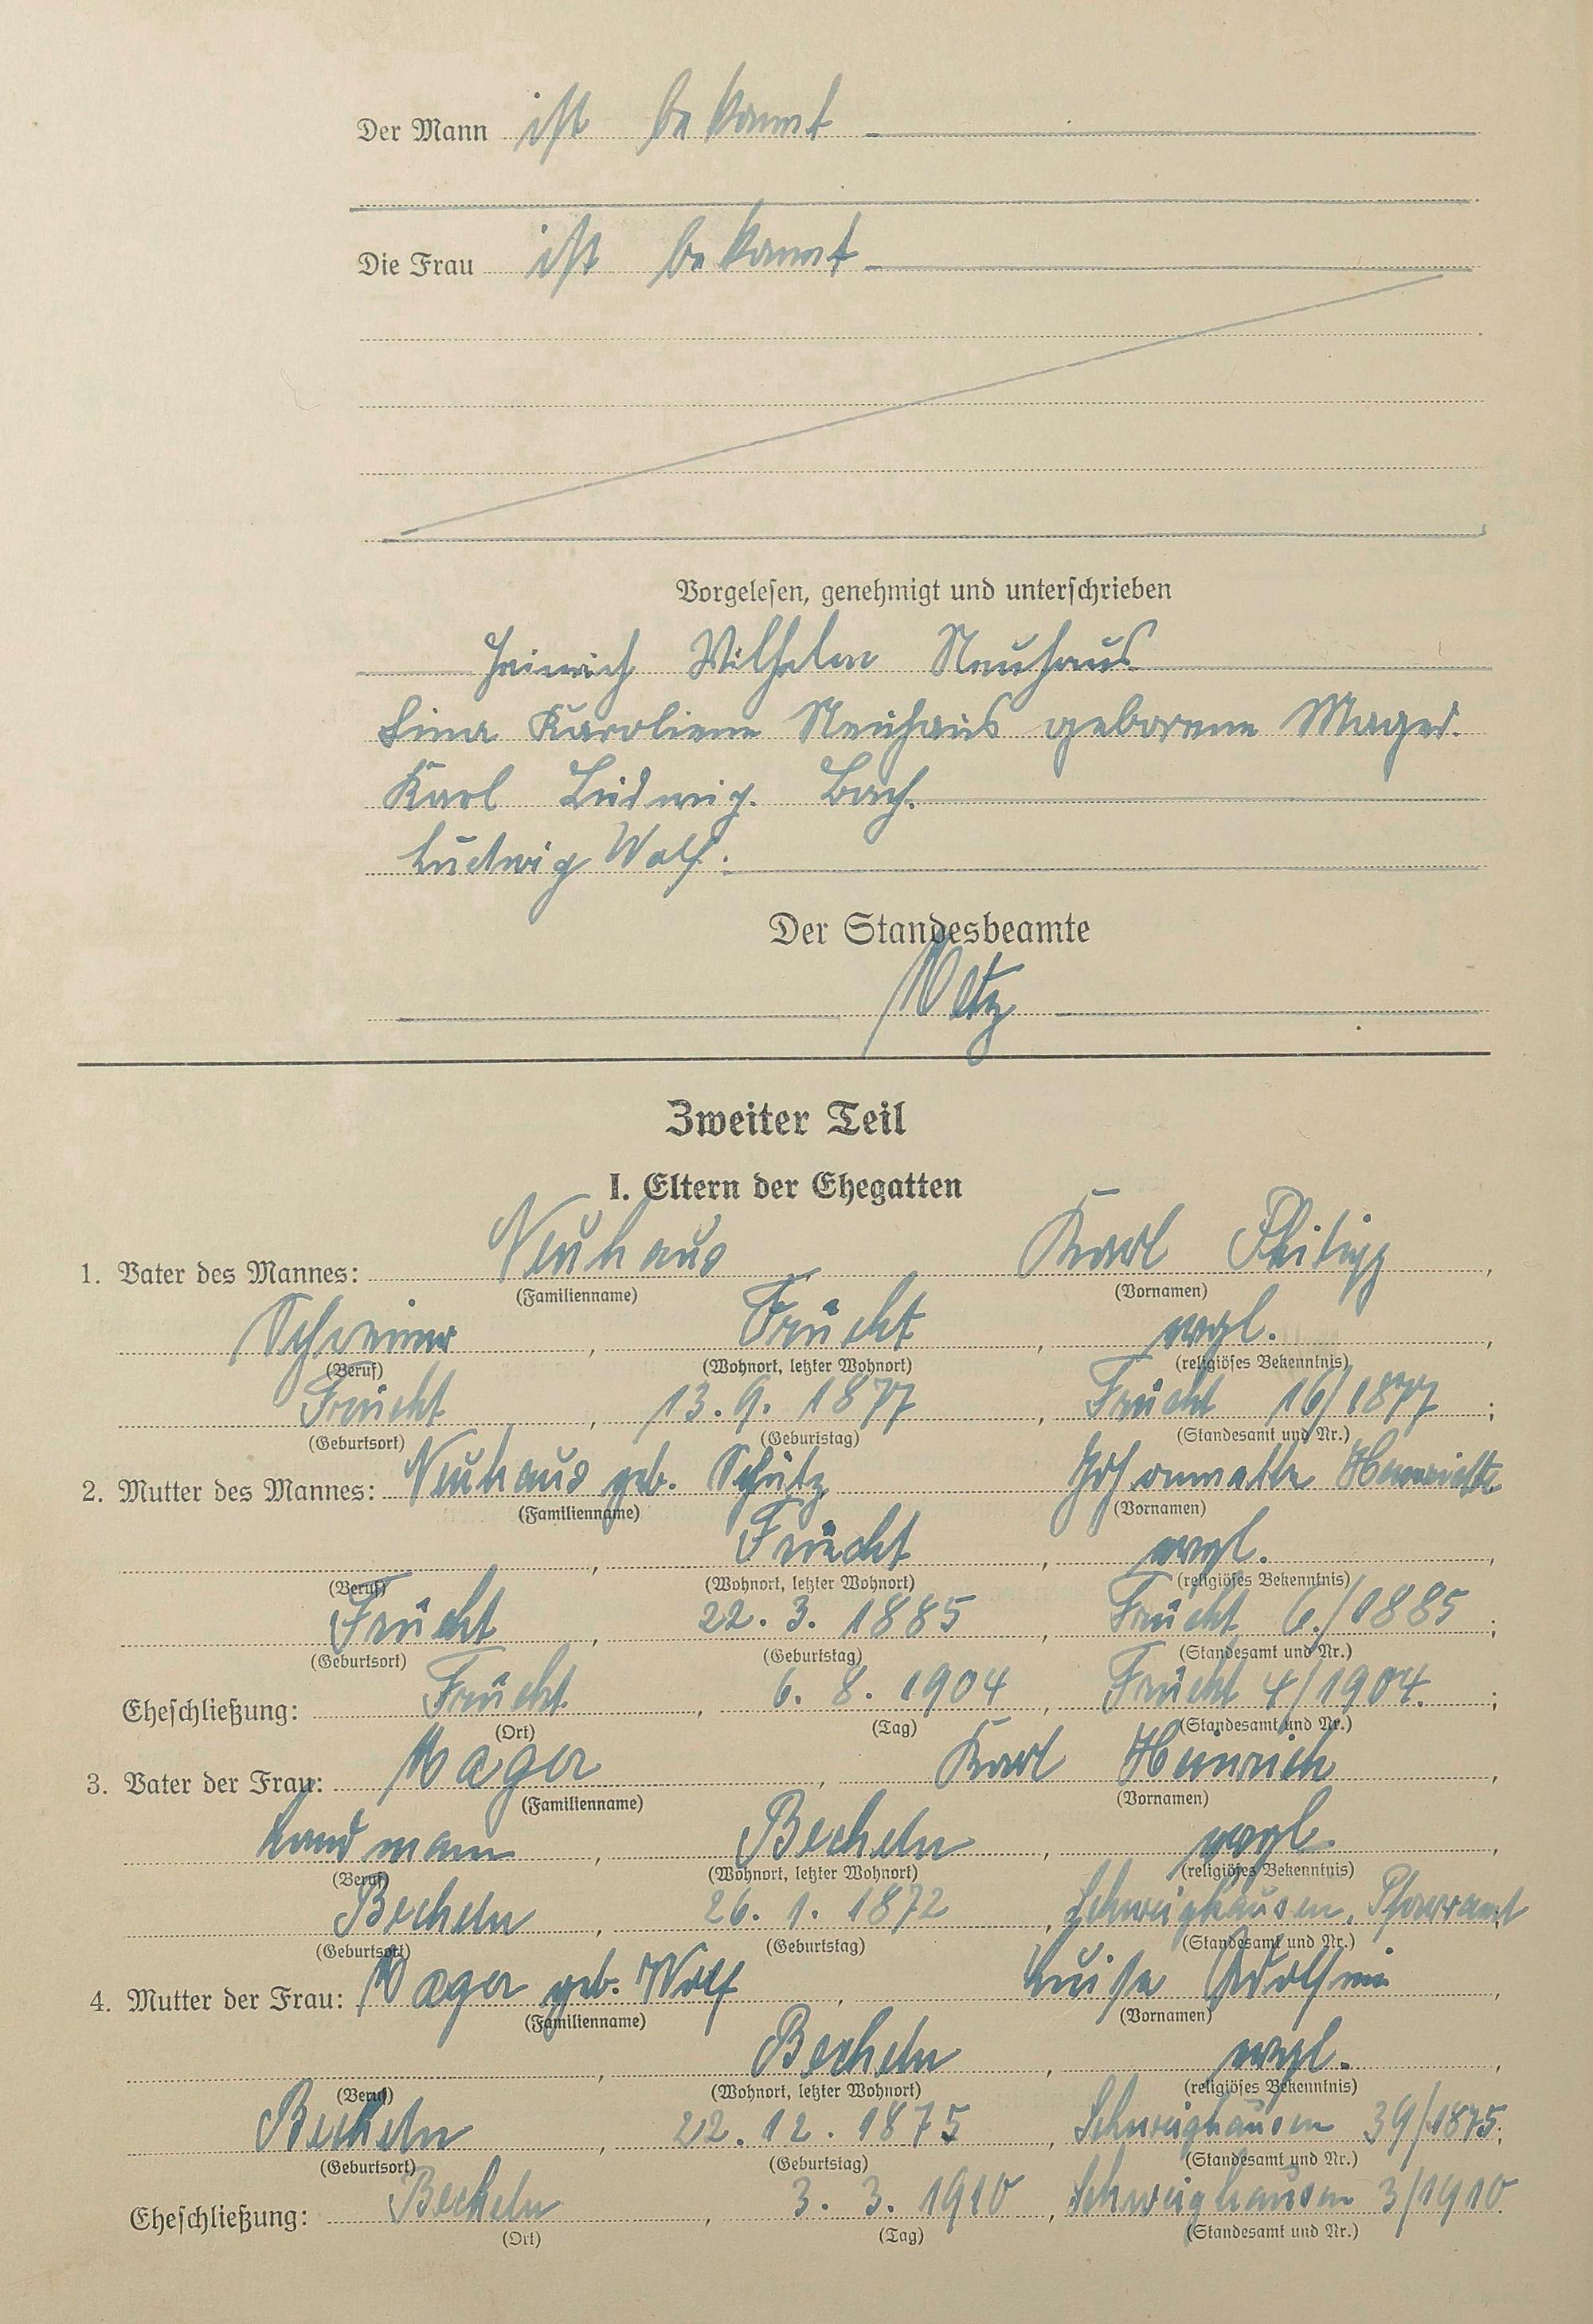 Der Mann ist bekannt
Die Frau ist bekannt
Vorgelesen, genehmigt und unterschrieben
Heinrich Wilhelm Neuhaus
Lina Karoliene Neuhaus geborene Mager.
Karl Ludwig. Bach.
Ludwig Wolf.
Der Standesbeamte
Metz
Zweiter Teil
I. Eltern der Ehegatten
1. Vater des Mannes: Neuhaus, Karl Philipp,
(Familienname) (Vornamen)
Schreiner, Frücht, evgl.,
(Beruf) (Wohnort, letzter Wohnort) (religiöses Bekenntnis)
Frücht, 13.9.1877, Frücht 16/1877;
(Geburtsort) (Geburtstag) (Standesamt und Nr.)
2. Mutter des Mannes: Neuhaus geb. Schütz Johannette Henriette
(Familienname) (Vornamen)
, Frücht, evgl.,
(Beruf) (Wohnort, letzter Wohnort) (religiöses Bekenntnis)
Frücht, 22.3.1885, Frücht 6./1885;
(Geburtsort) (Geburtstag) (Standesamt und Nr.)
Eheschließung: Frücht, 6.8.1904, Frücht 4/1904.;
(Ort) (Tag) (Standesamt und Nr.)
3. Vater der Frau: Mager, Karl Heinrich,
(Familienname) (Vornamen)
Landmann, Becheln, evgl.,
(Beruf) (Wohnort, letzter Wohnort) (religiöses Bekenntnis)
Becheln, 26.1.1872, Schweighausen, Pfarramt
(Geburtsort) (Geburtstag) (Standesamt und Nr.)
4. Mutter der Frau: Mager geb. Wolf, Luise Adolfine,
(Familienname) (Vornamen)
, Becheln, evgl.,
(Beruf) (Wohnort, letzter Wohnort) (religiöses Bekenntnis)
Becheln, 22.12.1875, Schweighausen 39/1875;
(Geburtsort) (Geburtstag) (Standesamt und Nr.)
Eheschließung: Becheln, 3.3.1910, Schweighausen 3/1910.
(Ort) (Tag) (Standesamt und Nr.)